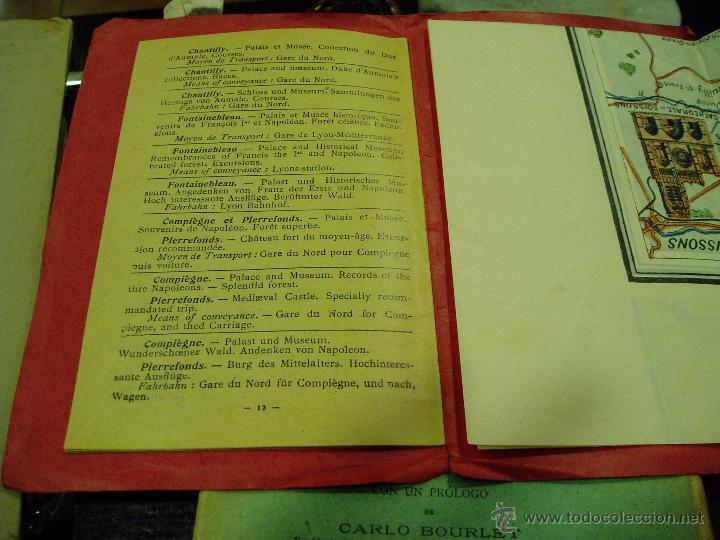 Chantilly. — Palais et Musée. Collection du Duc
d'Aumale. Courses.
Moyen de Transport : Gare du Nord.
Chantilly. — Palace and museum. Duke d'Aumale's
collections. Races.
Means of conveyance : Gare du Nord.
Chantilly. — Schloss und Museum. Sammlungen des
Herzogs von Aumale. Courses.
Fahrbahn : Gare du Nord.
Fontainebleau. — Palais et Musée historique. Sou-
venirs de François 1er et Napoléon. Forêt célèbre. Excur-
sions.
Moyen de Transport : Gare de Lyon-Méditerranée.
Fontainebleau — Palace and Historical Museum.
Remembrances of Francis the 1er and Napoleon. Cele-
brated forest. Excursions.
Means of conveyance : Lyons-station.
Fontainebleau. — Palast und Historisches Mu-
seum. Angedenken von Franz der Erste und Napoleon
Hoch interessante Ausflüge. Berühmter Wald.
Fahrbahn : Lyon Bahnhof.
Compiègne et Pierrefonds. — Palais et Musée.
Souvenirs de Napoléon. Forêt superbe.
Pierrefonds. — Château fort du moyen-âge. Excur-
sion recommandée.
Moyen de Transport : Gare du Nord pour Compiègne
puis voiture.
Compiègne. — Palace and Museum. Records of the
thre Napoleons. — Splendid forest.
Pierrefonds. — Mediæval Castle. Specially recom-
mandated trip.
Means of conveyance. — Gare du Nord for Com-
piegne, and thed Carriage.
Compiègne. — Palast und Museum.
Wunderschœner Wald. Andenken von Napoleon.
Pierrefonds. — Burg des Mittelalters. Hochinteres-
sante Ausflüge.
Fahrbahn : Gare du Nord für Compiègne, und nach,
Wagen.
— 12 —
CATHEDRALE DE SOISSONS
ISSONS
CON UN PRÓLOGO
DE
CARLO BOURLET
www.todocoleccion.net